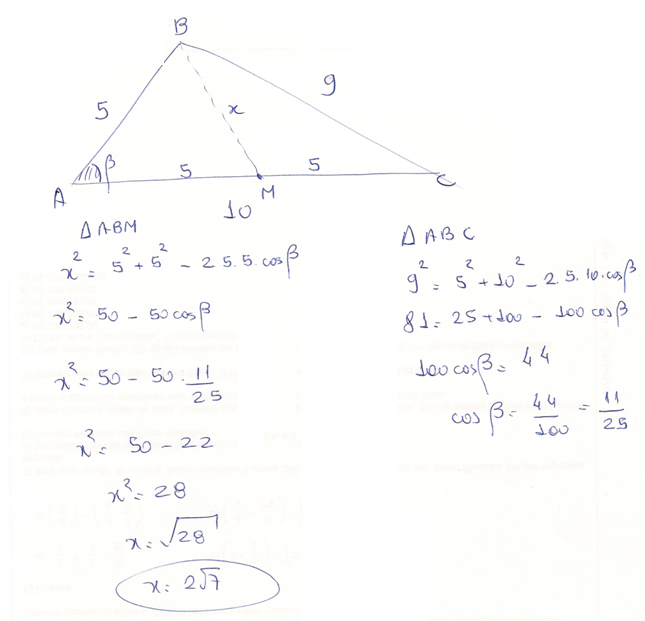 B
5
x
9
β
5
5
A
M
C
10
Δ ABM
x² = 5² + 5² - 2 5.5.cosβ
x² = 50 - 50 cosβ
x² = 50 - 50 . 11/25
x² = 50 - 22
x² = 28
x = √28
x = 2√7
Δ ABC
9² = 5² + 10² - 2.5.10.cosβ
81 = 25 + 100 - 100 cosβ
100 cosβ = 44
cosβ = 44/100 = 11/25